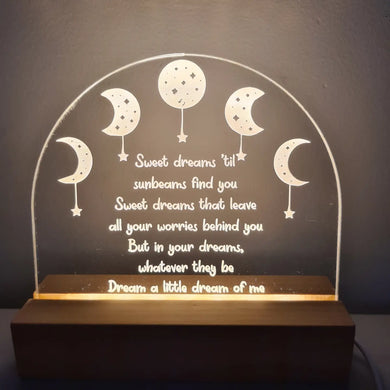 Sweet dreams 'til
sunbeams find you
Sweet dreams that leave
all your worries behind you
But in your dreams,
whatever they be
Dream a little dream of me